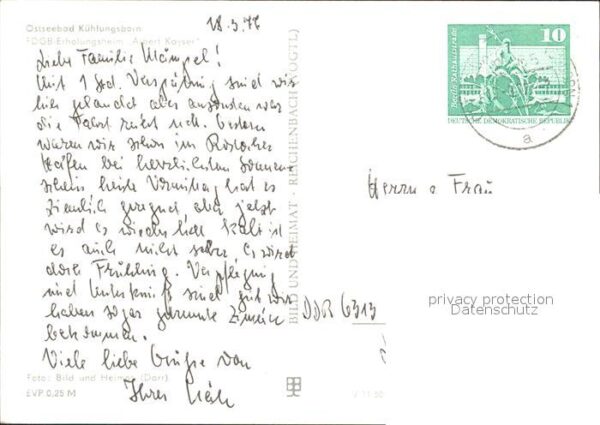 18.3.77
Ostseebad Kühlungsborn
FDGB-Erholungsheim „Albert Kayser"
Liebe Familie Mämpel!
Mit 1 Std. Verspätung sind wir
hier gelandet aber ansonsten war
die Fahrt recht nett. Gestern
waren wir schon im Rostocker
Hafen bei herrlichem Sonnen-
schein heute Vormittag hat es
ziemlich geregnet, aber jetzt
wird es wieder hell. Kalt ist
es auch nicht sehr, es wird
doch Frühling. Verpflegung
und Unterkunft sind gut wir
haben sogar getrennte Zimmer
bekommen.
Viele liebe Grüße von
Ihrer
Foto: Bild und Heimat (Darr)
EVP 0,25 M
BILD UND HEIMAT · REICHENBACH (VOGTL)
10
Berlin Rathausstraße
DEUTSCHE DEMOKRATISCHE REPUBLIK
a
Herrn u Frau
DDR 6313
privacy protection
Datenschutz